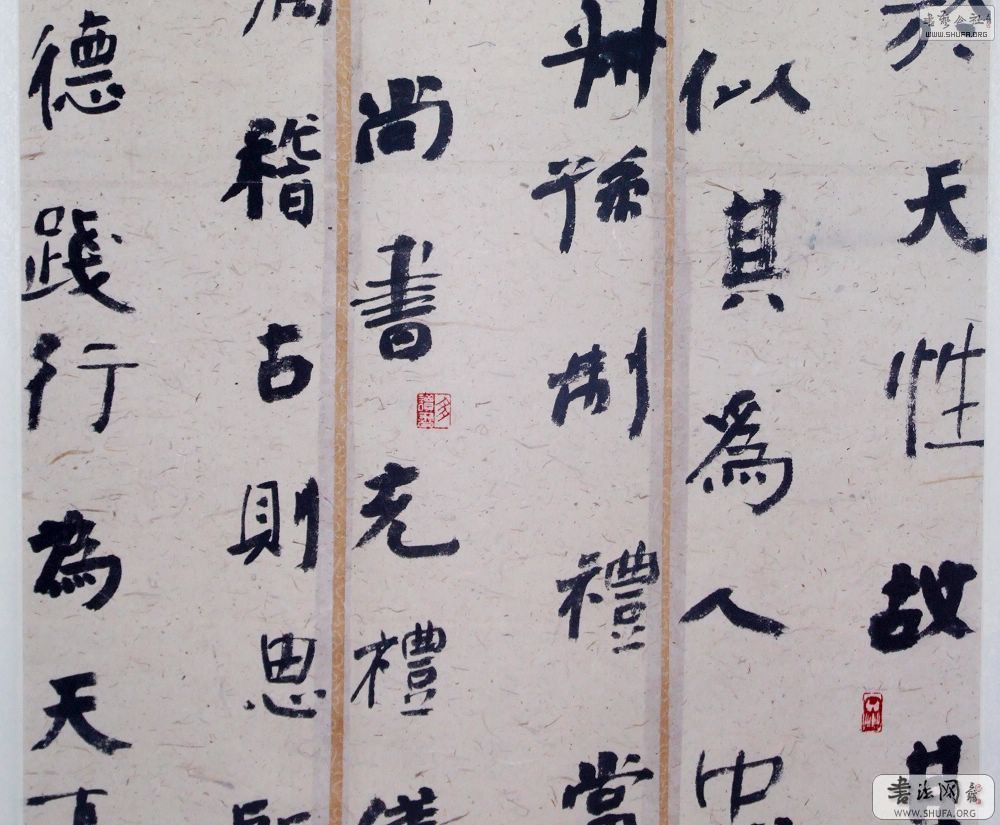 天性故其
似其為人中
叔孫制禮當
尚書充禮儀
稽古則思
德踐行為天
書法網
WWW.SHUFA.ORG
WWW.SHUFA.ORG